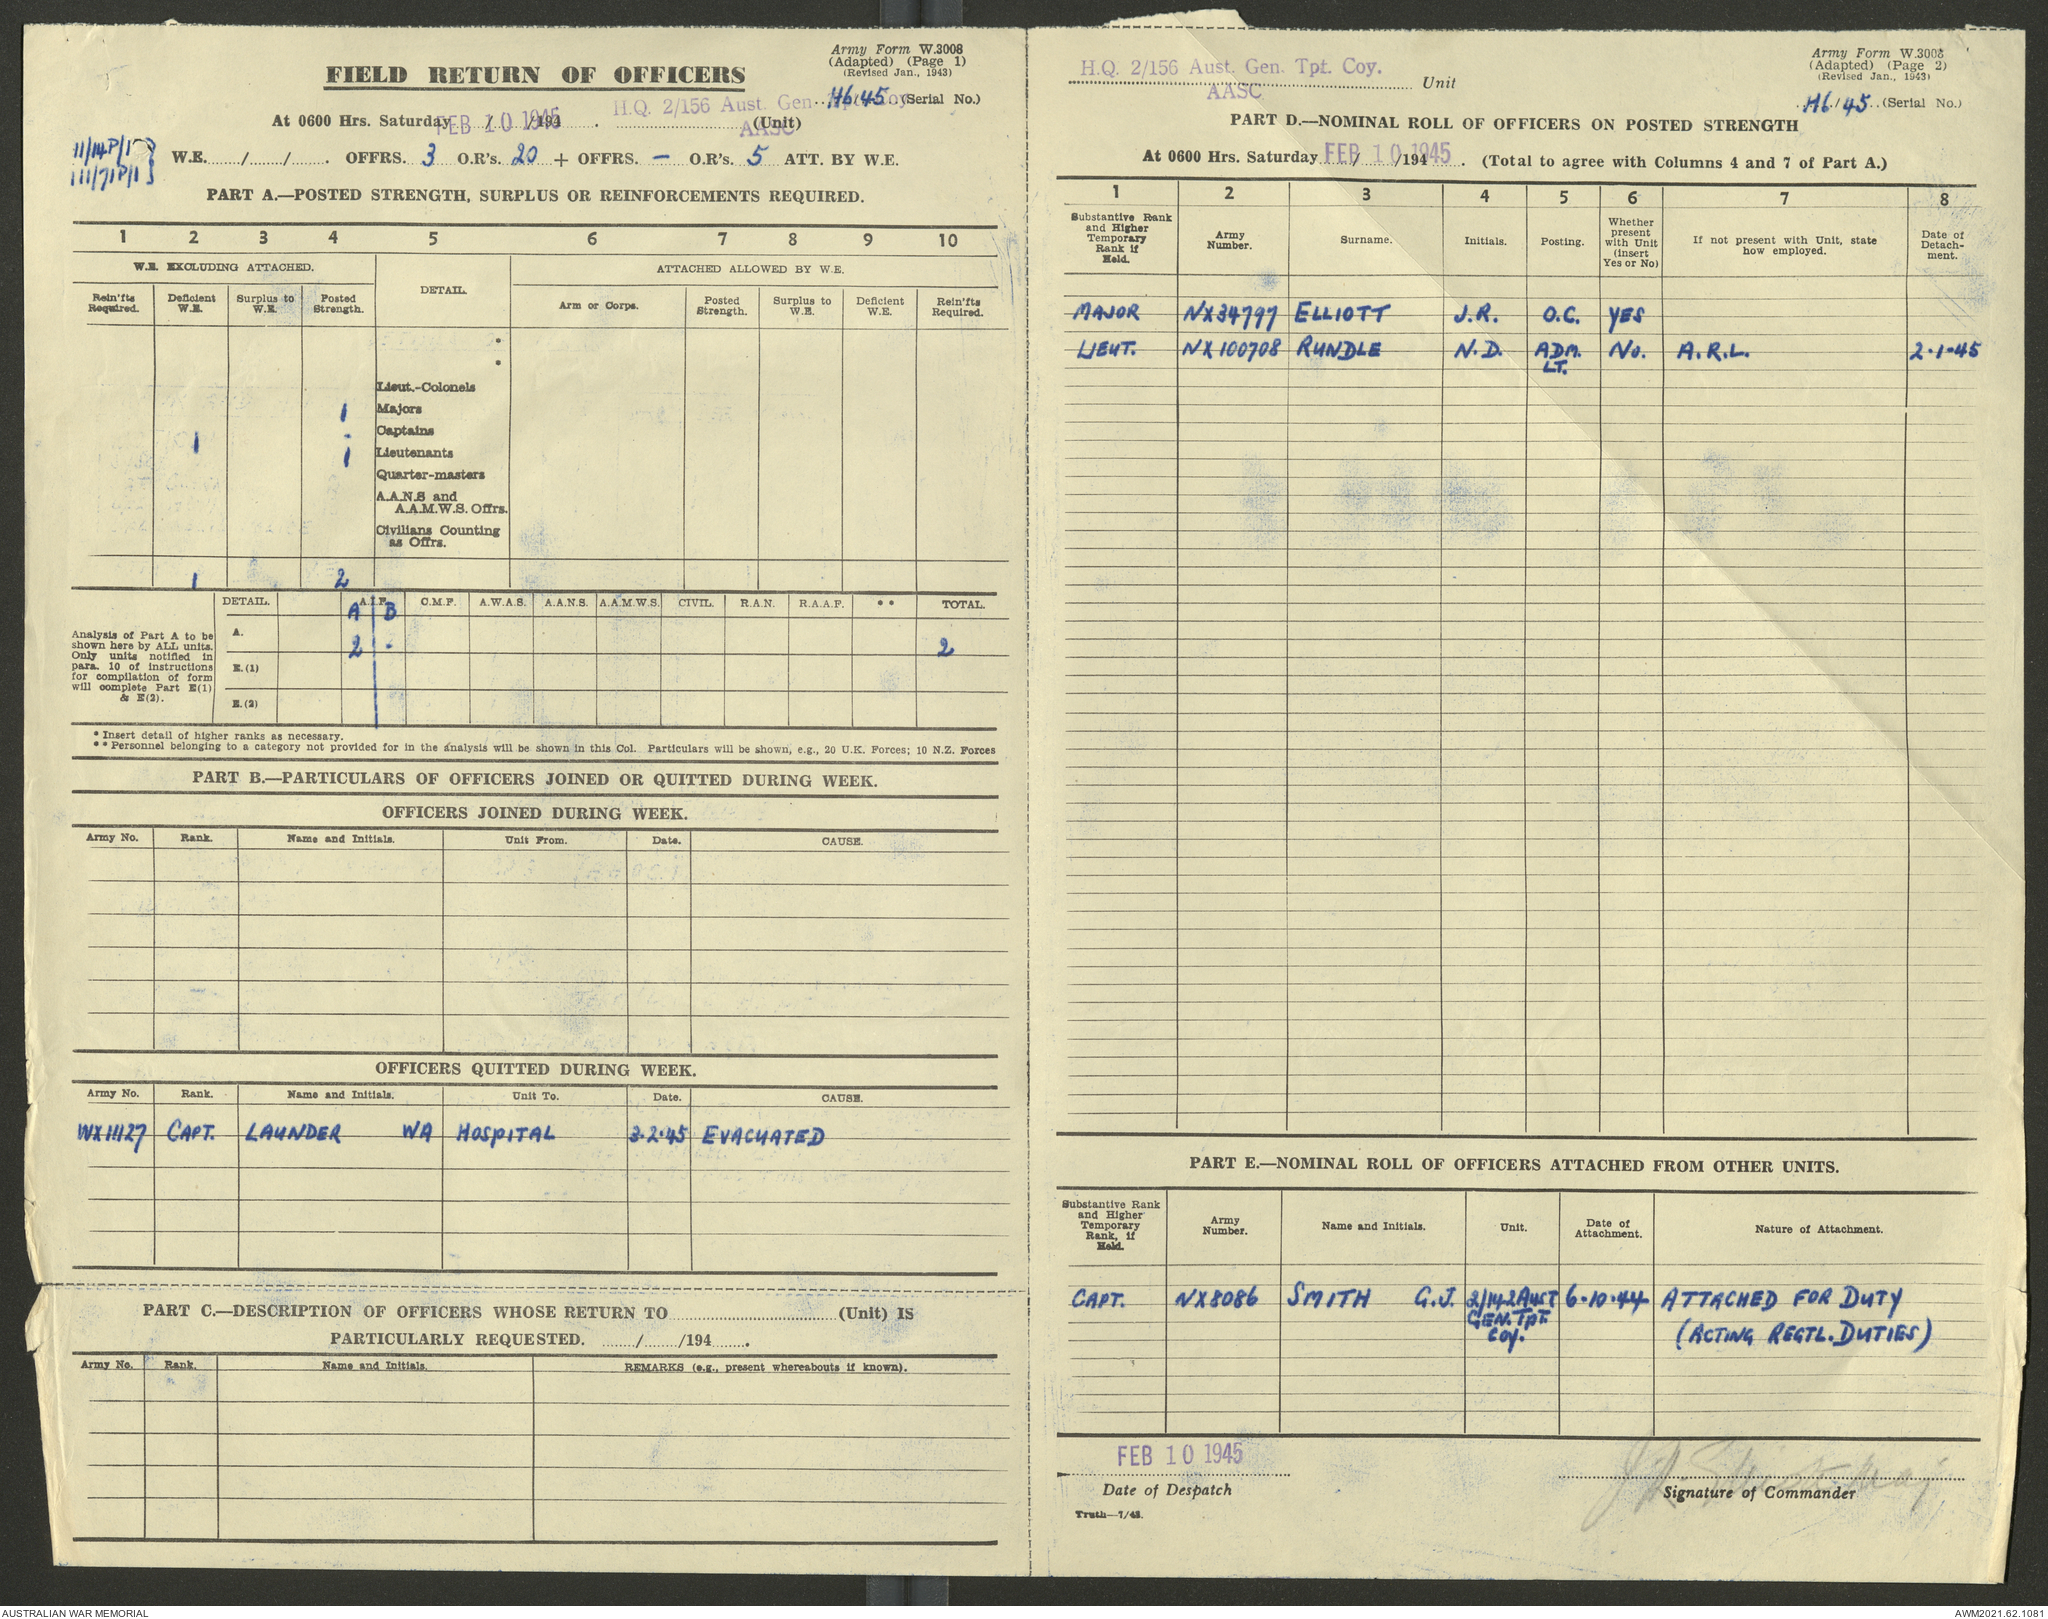 Army Form W.3008
(Adapted) (Page 1)
(Revised Jan., 1943)
FIELD RETURN OF OFFICERS
H6/45 (Serial No.)
At 0600 Hrs. Saturday FEB 10 1945 /194 . H.Q. 2/156 Aust. Gen. Tpt. Coy AASC (Unit)
W.E. / / . OFFRS. 3 O.R's. 20 + OFFRS. — O.R's. 5 ATT. BY W.E.
PART A.—POSTED STRENGTH, SURPLUS OR REINFORCEMENTS REQUIRED.
1 2 3 4 5 6 7 8 9 10
W.E. EXCLUDING ATTACHED. DETAIL. ATTACHED ALLOWED BY W.E.
Rein'fts Required. Deficient W.E. Surplus to W.E. Posted Strength. Arm or Corps. Posted Strength. Surplus to W.E. Deficient W.E. Rein'fts Required.
*
*
Lieut.-Colonels
1 Majors
1 - Captains
1 Lieutenants
Quarter-masters
A.A.N.S and
A.A.M.W.S. Offrs.
Civilians Counting
as Offrs.
1 2
DETAIL. A.I.F. C.M.F. A.W.A.S. A.A.N.S. A.A.M.W.S. CIVIL. R.A.N. R.A.A.F. ** TOTAL.
A B
Analysis of Part A to be
shown here by ALL units.
Only units notified in
para. 10 of instructions
for compilation of form
will complete Part E(1)
& E(2).
A. 2 - 2
E.(1)
E.(2)
* Insert detail of higher ranks as necessary.
** Personnel belonging to a category not provided for in the analysis will be shown in this Col. Particulars will be shown, e.g., 20 U.K. Forces; 10 N.Z. Forces
PART B.—PARTICULARS OF OFFICERS JOINED OR QUITTED DURING WEEK.
OFFICERS JOINED DURING WEEK.
Army No. Rank. Name and Initials. Unit From. Date. CAUSE.
OFFICERS QUITTED DURING WEEK.
Army No. Rank. Name and Initials. Unit To. Date. CAUSE.
WX11127 CAPT. LAUNDER WA HOSPITAL 3.2.45 EVACUATED
PART C.—DESCRIPTION OF OFFICERS WHOSE RETURN TO (Unit) IS
PARTICULARLY REQUESTED. / /194 .
Army No. Rank. Name and Initials. REMARKS (e.g., present whereabouts if known).
Army Form W.3008
(Adapted) (Page 2)
(Revised Jan., 1943)
H.Q. 2/156 Aust. Gen. Tpt. Coy. Unit
AASC
H6/45 (Serial No.)
PART D.—NOMINAL ROLL OF OFFICERS ON POSTED STRENGTH
At 0600 Hrs. Saturday FEB 10 1945 /194 . (Total to agree with Columns 4 and 7 of Part A.)
1 2 3 4 5 6 7 8
Substantive Rank and Higher Temporary Rank if Held. Army Number. Surname. Initials. Posting. Whether present with Unit (insert Yes or No) If not present with Unit, state how employed. Date of Detach-ment.
MAJOR NX34797 ELLIOTT J.R. O.C. YES
LIEUT. NX100708 RUNDLE N.D. ADM. LT. NO. A.R.L. 2.1.45
PART E.—NOMINAL ROLL OF OFFICERS ATTACHED FROM OTHER UNITS.
Substantive Rank and Higher Temporary Rank, if Held. Army Number. Name and Initials. Unit. Date of Attachment. Nature of Attachment.
CAPT. NX8086 SMITH G.J. 2/142 AUST GEN. TPT. COY. 6.10.44 ATTACHED FOR DUTY
(ACTING REGTL. DUTIES)
FEB 10 1945
Date of Despatch
Signature of Commander
Truth—7/43.
AUSTRALIAN WAR MEMORIAL
AWM2021.62.1081